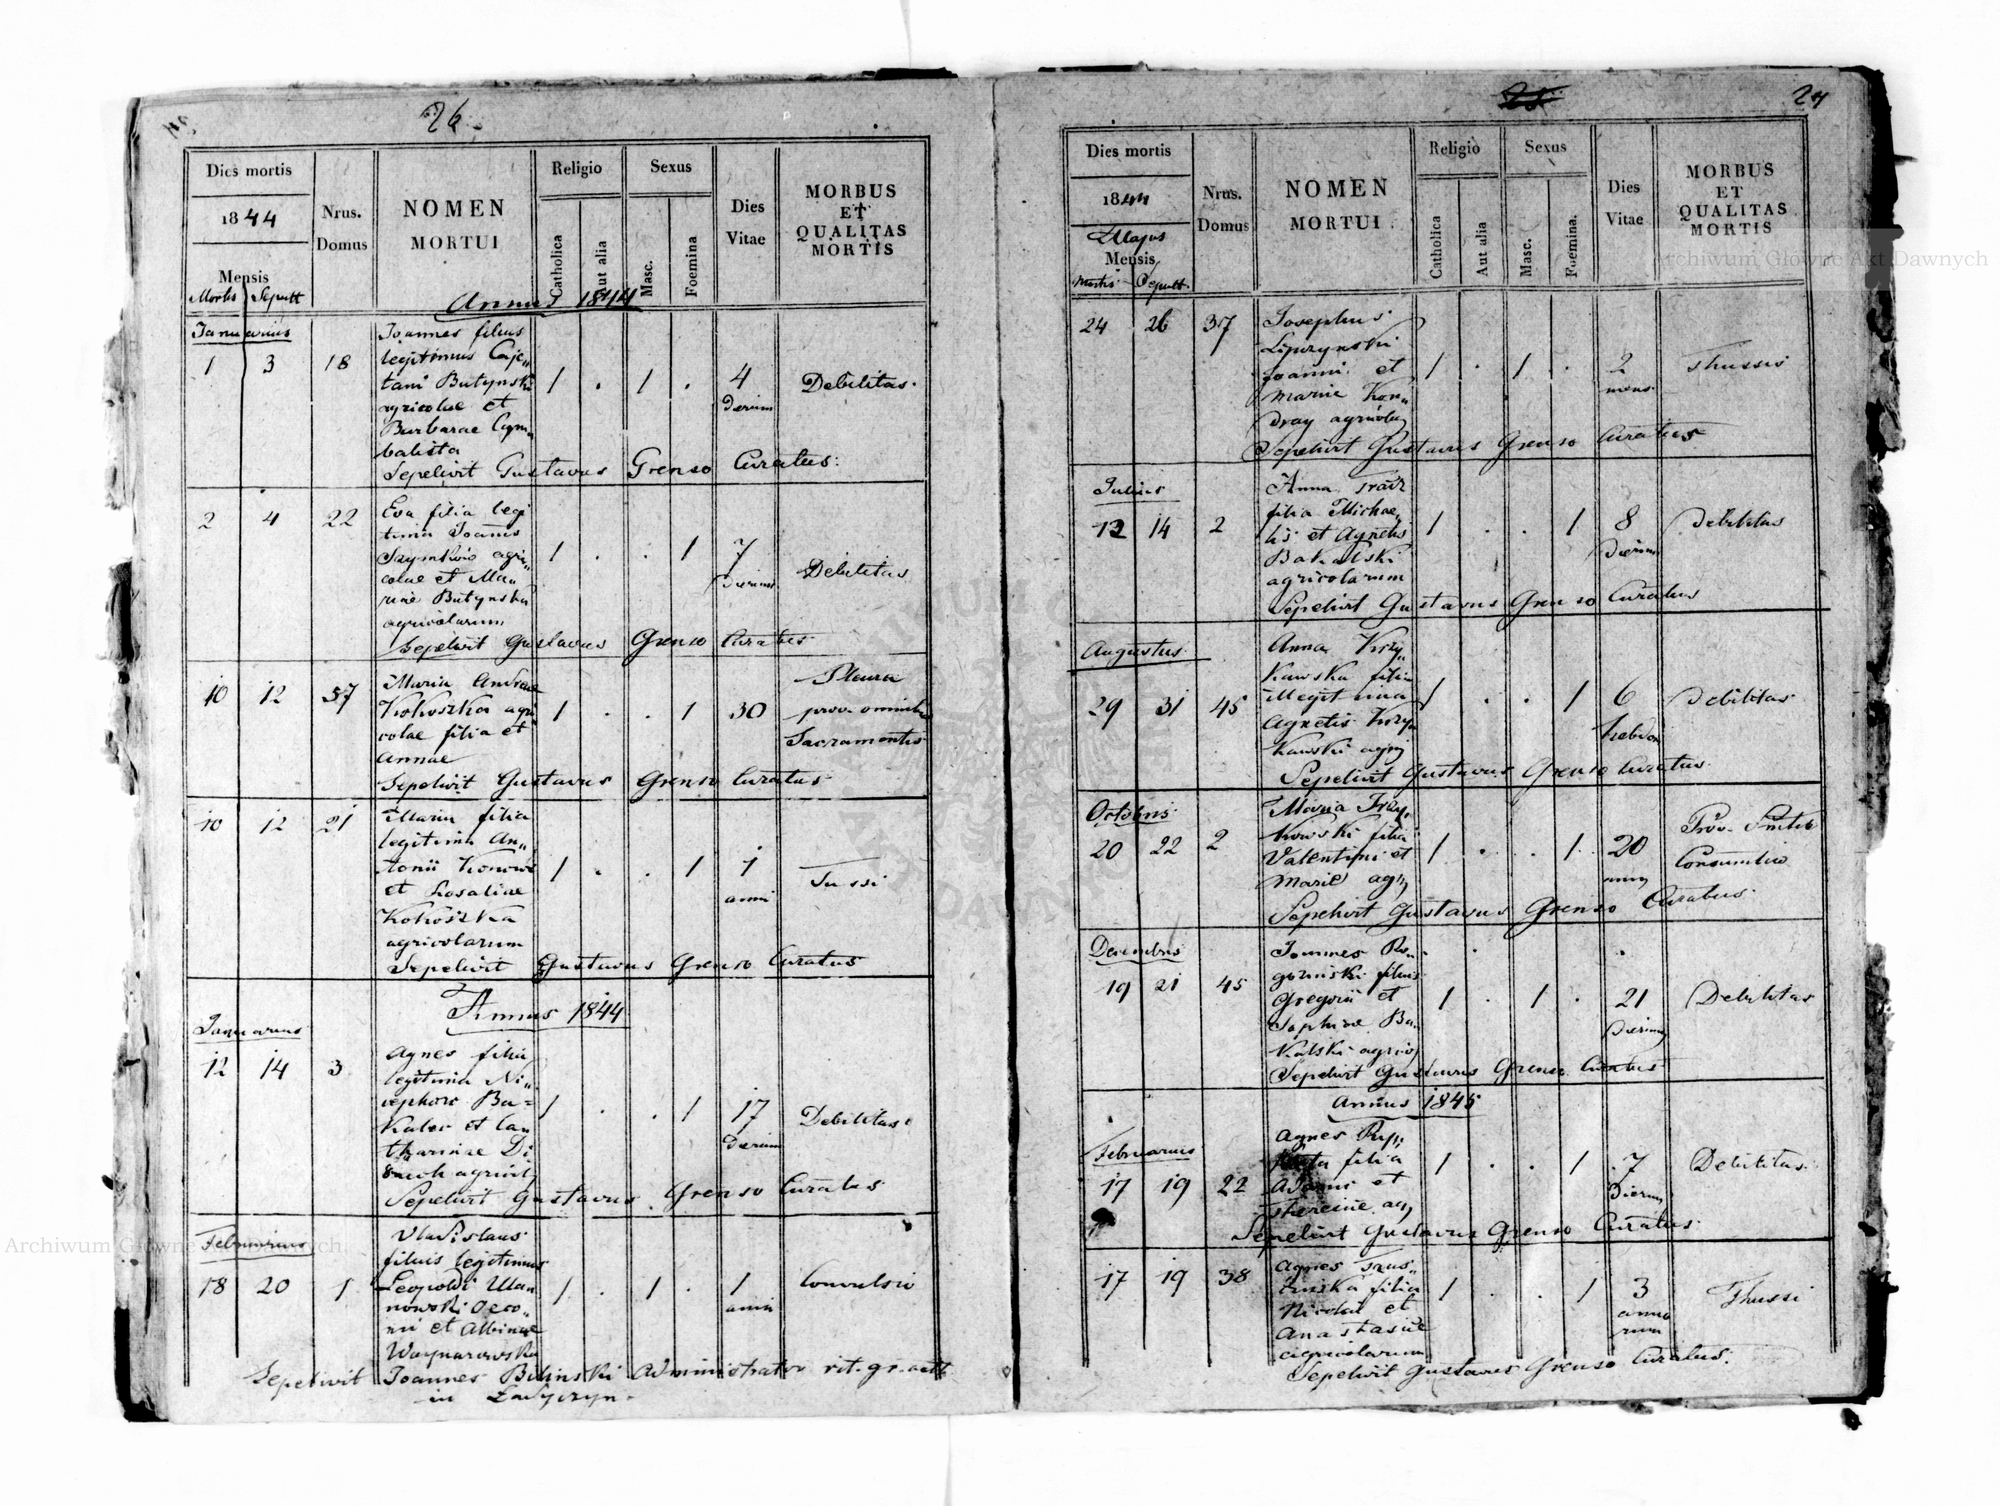 26
Dies mortis
1844
Mensis
Mortis Sepult
Nrus. Domus
NOMEN MORTUI
Religio
Catholica
Aut alia
Sexus
Masc.
Foemina
Dies Vitae
MORBUS ET QUALITAS MORTIS
Annus 1844
Januarius
1 3 18
Joannes filius
legitimus Caje„
tani Butynski
agricolae et
Barbarae Cym„
balista
1 . 1 .
4 Dierum
Debilitas.
Sepelivit Gustavus Grenso Curatus:
2 4 22
Eva filia legi
tima Joanis
Szymkow agri„
colae et Ma„
riae Butynska
agricolarum
1 . . 1
7 Dierum
Debilitas
Sepelivit Gustavus Grenso Curatus
10 12 57
Maria Andreae
Kokoszka agri
colae filia et
Annae
1 . . 1
30
Pleura
prov. omnib
Sacramentis
Sepelivit Gustavus Grenso Curatus
10 12 21
Maria filia
legitima An„
tonii
et Rosaliae
Kokoszka
agricolarum
1 . . 1
1 anni
Tussi
Sepelivit Gustavus Grenso Curatus
Annus 1844
Januarius
12 14 3
Agnes filia
legitima Ni„
cephori Ba=
et Ca
tharinae
1 . . 1
17 Dierum
Debilitas
Sepelivit Gustavus Grenso Curatus
Februarius
18 20 1
Vladislaus
filius legitimus
Leopoldi Ula„
nowski Oeco„
mi et Albinae
Waynarowska
1 . 1 .
1 anni
Convulsio
Sepelivit Joannes Bilinski Administrator rit. gr. catt
in Ladyczyn.
27
Dies mortis
1844
Majus
Mensis
Mortis Sepult.
Nrus. Domus
NOMEN MORTUI
Religio
Catholica
Aut alia
Sexus
Masc.
Foemina.
Dies Vitae
MORBUS ET QUALITAS MORTIS
24 26 37
Josephus
Lipczynski
Joanni et
Mariae Kon„
dray agricola
1 . 1 .
2 mens.
Thussis
Sepelivit Gustavus Grenso Curatus
Julius
12 14 2
Anna
filia Michae„
lis et Agnetis
Bakalski
agricolarum
1 . . 1
8 Dierum
Debilitas
Sepelivit Gustavus Grenso Curatus
Augustus
29 31 45
Anna Krzy„
kawska filia
illegitima
Agnetis Krzy
kawski agri
1 . . 1
6
Debilitas
Sepelivit Gustavus Grenso Curatus
Octobris
20 22 2
Maria
kowski filia
Valentini et
Mariae agri
1 . . 1
20
Consumtio
Sepelivit Gustavus Grenso Curatus
Decembris
19 21 45
Joannes Ro„
gozinski filius
Gregorii et
Sophiae Ba„
kalski agrico
1 . 1 .
21 Dierum
Debilitas
Sepelivit Gustavus Grenso Curatus
Annus 1845
Februarius
17 19 22
Agnes
filia
Adami et
1 . . 1
7 Dierum
Debilitas
Sepelivit Gustavus Grenso Curatus
17 19 38
Agnes
filia
Nicolai et
Anastasiae
agricolarum
1 . . 1
3 anno
rum
Thussi
Sepelivit Gustavus Grenso Curatus.
Archiwum Główne Akt Dawnych
Archiwum Główne Akt Dawnych